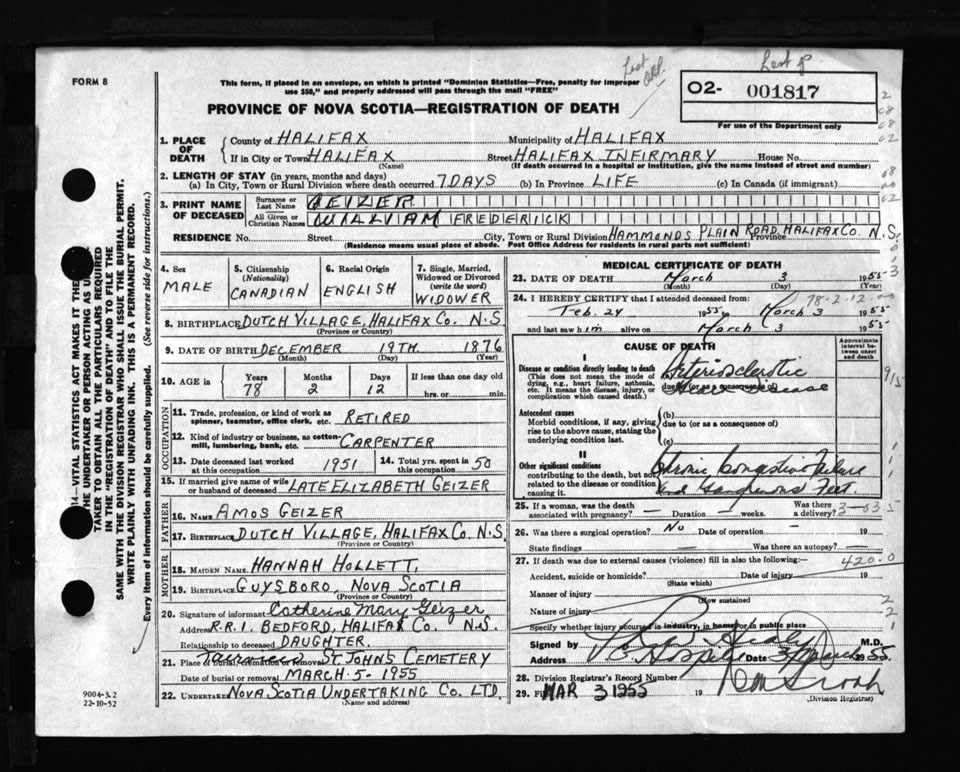 FORM 8
This form, if placed in an envelope, on which is printed "Dominion Statistics—Free, penalty for improper
use $50," and properly addressed will pass through the mail "FREE"
PROVINCE OF NOVA SCOTIA—REGISTRATION OF DEATH
O2- 001817
For use of the Department only
1. PLACE OF DEATH
County of HALIFAX Municipality of HALIFAX
If in City or Town HALIFAX Street HALIFAX INFIRMARY House No.
(Name) (If death occurred in a hospital or institution, give the name instead of street and number)
2. LENGTH OF STAY (in years, months and days)
(a) In City, Town or Rural Division where death occurred 7 DAYS (b) In Province LIFE (c) In Canada (if immigrant)
3. PRINT NAME OF DECEASED
Surname or Last Name GEIZER
All Given or Christian Names WILLVIAM FREDERICK
RESIDENCE No. Street City, Town or Rural Division HAMMONDS PLAIN ROAD, HALIFAX CO. Province N.S.
(Residence means usual place of abode. Post Office Address for residents in rural parts not sufficient)
4. Sex MALE
5. Citizenship (Nationality) CANADIAN
6. Racial Origin ENGLISH
7. Single, Married, Widowed or Divorced (write the word) WIDOWER
8. BIRTHPLACE DUTCH VILLAGE, HALIFAX CO. N.S
(Province or Country)
9. DATE OF BIRTH DECEMBER 19TH. 1876
(Month) (Day) (Year)
10. AGE in Years 78 Months 2 Days 12 If less than one day old hrs. or min.
OCCUPATION
11. Trade, profession, or kind of work as spinner, teamster, office clerk, etc. RETIRED
12. Kind of industry or business, as cotton-mill, lumbering, bank, etc. CARPENTER
13. Date deceased last worked at this occupation 1951 14. Total yrs. spent in this occupation 50
15. If married give name of wife or husband of deceased LATE ELIZABETH GEIZER
FATHER
16. NAME AMOS GEIZER
17. BIRTHPLACE DUTCH VILLAGE, HALIFAX CO. N.S,
(Province or Country)
MOTHER
18. MAIDEN NAME HANNAH HOLLETT,
19. BIRTHPLACE GUYSBORO, NOVA SCOTIA
(Province or Country)
20. Signature of informant Catherine Mary Geizer
Address R.R.1. BEDFORD, HALIFAX CO. N.S.
Relationship to deceased DAUGHTER.
21. Place of burial, cremation or removal ST. JOHNS CEMETERY
Date of burial or removal MARCH 5 - 1955
22. UNDERTAKER NOVA SCOTIA UNDERTAKING CO. LTD.
(Name and address)
MEDICAL CERTIFICATE OF DEATH
23. DATE OF DEATH March 3 1955
(Month) (Day) (Year)
78-2-12
24. I HEREBY CERTIFY that I attended deceased from
Feb. 24 1955 to March 3 1955
and last saw him alive on March 3 1955
CAUSE OF DEATH
Approximate interval between onset and death
I
Disease or condition directly leading to death
(This does not mean the mode of dying, e.g., heart failure, asthenia, etc. It means the disease, injury, or complication which caused death.)
(a) Arteriosclerotic
due to (or as a consequence of)
Heart Disease
Antecedent causes
Morbid conditions, if any, giving rise to above cause, stating the underlying condition last.
(b)
due to (or as a consequence of)
(c)
II
Other significant conditions
contributing to the death, but not related to the disease or condition causing it.
Chronic Congestive Failure
and Gangrenous Feet.
25. If a woman, was the death associated with pregnancy? — Duration — weeks. Was there a delivery?
26. Was there a surgical operation? No Date of operation — 19
State findings — Was there an autopsy? —
27. If death was due to external causes (violence) fill in also the following:— 420.0
Accident, suicide or homicide? Date of injury 19
(State which)
Manner of injury
(How sustained)
Nature of injury
Specify whether injury occurred in industry, in home, or in public place
Signed by M.D.
Address Date 3 March 1955.
28. Division Registrar's Record Number
29. Filed MAR 3 1955 19
(Division Registrar)
9004-3.2
22-10-52
14—VITAL STATISTICS ACT MAKES IT THE
THE UNDERTAKER OR PERSON ACTING AS UN
TAKER TO OBTAIN ALL THE PARTICULARS REQUIRED
IN THE "REGISTRATION OF DEATH" AND TO FILE THE
SAME WITH THE DIVISION REGISTRAR WHO SHALL ISSUE THE BURIAL PERMIT.
WRITE PLAINLY WITH UNFADING INK. THIS IS A PERMANENT RECORD.
Every item of information should be carefully supplied. (See reverse side for instructions.)